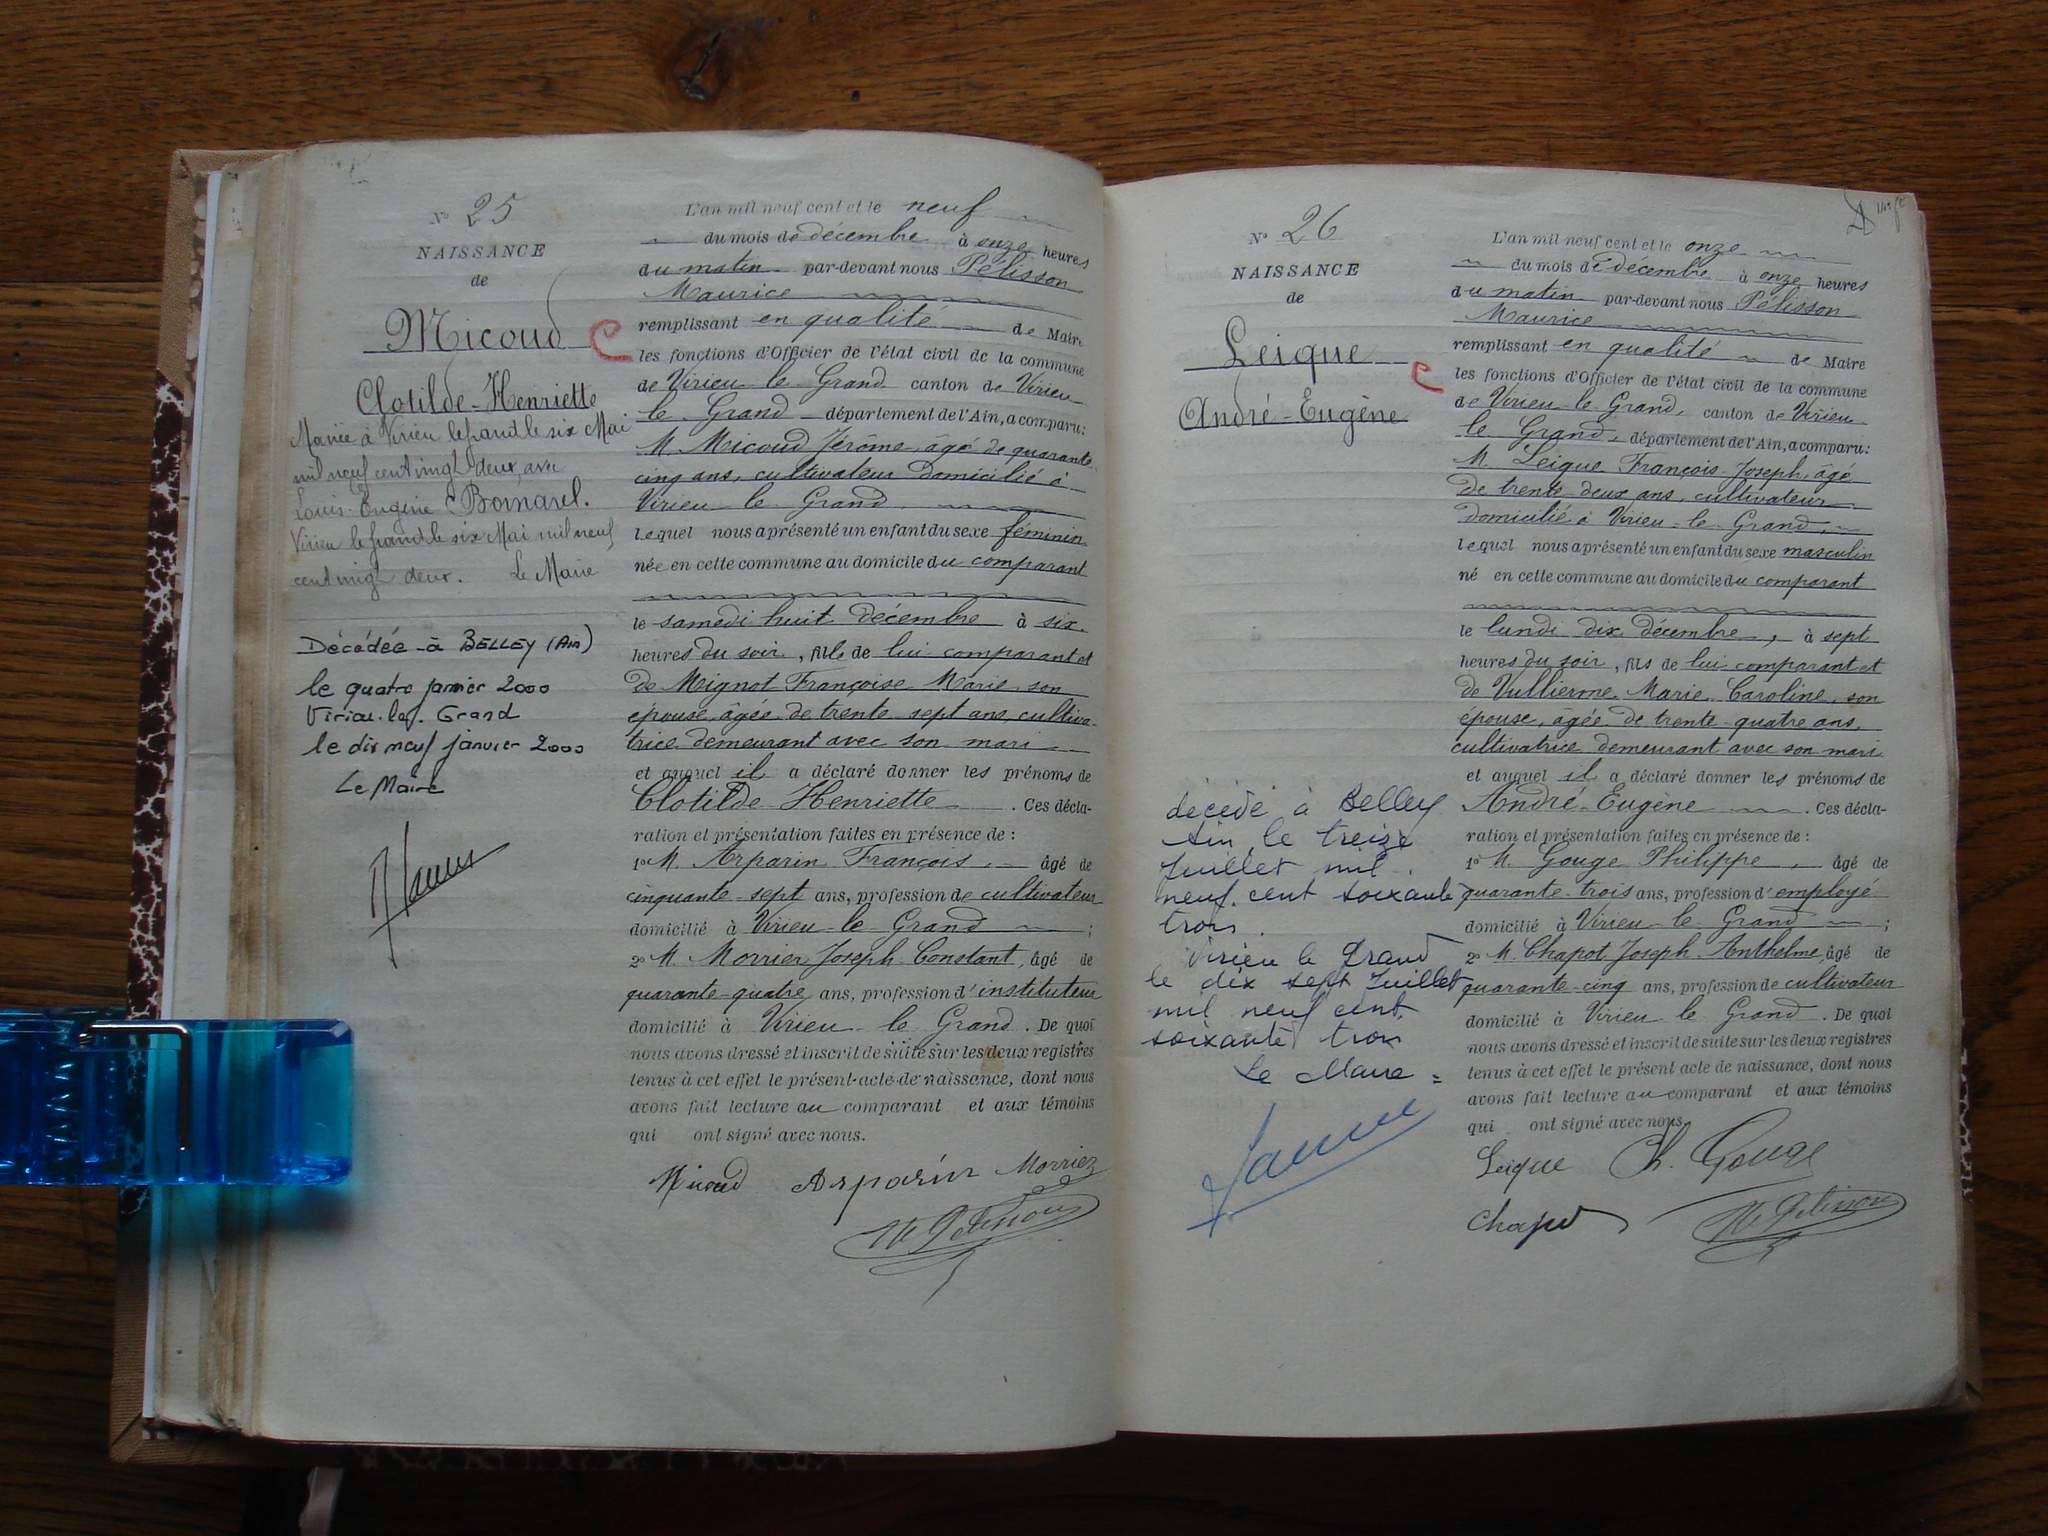 N° 25
NAISSANCE
de
Micoud
Clotilde-Henriette
Mariée à Virieu le grand le six Mai
mil neuf cent vingt deux avec
Louis-Eugène Bornarel.
Virieu le grand le six Mai mil neuf
cent vingt deux. Le Maire
Décédée à BELLEY (Ain)
le quatre janvier 2000
Virieu-le-Grand
le dix neuf janvier 2000
Le Maire
L'an mil neuf cent et le neuf
du mois de décembre à onze heures
du matin par-devant nous Pélisson
Maurice
remplissant en qualité de Maire
les fonctions d'Officier de l'état civil de la commune
de Virieu le Grand canton de Virieu
le Grand département de l'Ain, a comparu:
M. Micoud Jérôme, âgé de quarante
cinq ans, cultivateur domicilié à
Virieu-le-Grand
lequel nous a présenté un enfant du sexe féminin
née en cette commune au domicile du comparant
le samedi huit décembre à six
heures du soir, fille de lui comparant et
de Mignot Françoise Marie, son
épouse, âgée de trente sept ans, cultiva-
trice demeurant avec son mari
et auquel il a déclaré donner les prénoms de
Clotilde Henriette. Ces décla-
ration et présentation faites en présence de :
1° M. Arparin François, âgé de
cinquante-sept ans, profession de cultivateur
domicilié à Virieu-le-Grand ;
2° M. Morrier Joseph Constant, âgé de
quarante-quatre ans, profession d'instituteur
domicilié à Virieu-le-Grand. De quoi
nous avons dressé et inscrit de suite sur les deux registres
tenus à cet effet le présent acte de naissance, dont nous
avons fait lecture au comparant et aux témoins
qui ont signé avec nous.
Micoud Arparin Morriez
M Pélisson
N° 26
NAISSANCE
de
Leique
André-Eugène
décédé à Belley
Ain, le treize
Juillet mil
neuf cent soixante
trois.
Virieu le Grand
le dix sept Juillet
mil neuf cent
soixante trois
Le Maire =
L'an mil neuf cent et le onze
du mois de décembre à onze heures
du matin par-devant nous Pélisson
Maurice
remplissant en qualité de Maire
les fonctions d'Officier de l'état civil de la commune
de Virieu-le-Grand, canton de Virieu
le Grand, département de l'Ain, a comparu:
M. Leique François-Joseph, âgé
de trente deux ans, cultivateur
domicilié à Virieu-le-Grand,
lequel nous a présenté un enfant du sexe masculin
né en cette commune au domicile du comparant
le lundi dix décembre, à sept
heures du soir, fils de lui comparant et
de Vullierme Marie Caroline, son
épouse, âgée de trente-quatre ans,
cultivatrice demeurant avec son mari
et auquel il a déclaré donner les prénoms de
André-Eugène. Ces décla-
ration et présentation faites en présence de :
1° M. Gouge Philippe, âgé de
quarante-trois ans, profession d'employé
domicilié à Virieu-le-Grand ;
2° M. Chapot Joseph Anthelme, âgé de
quarante-cinq ans, profession de cultivateur
domicilié à Virieu le Grand. De quoi
nous avons dressé et inscrit de suite sur les deux registres
tenus à cet effet le présent acte de naissance, dont nous
avons fait lecture au comparant et aux témoins
qui ont signé avec nous.
Leique Ph. Gouge
Chapot M Pélisson